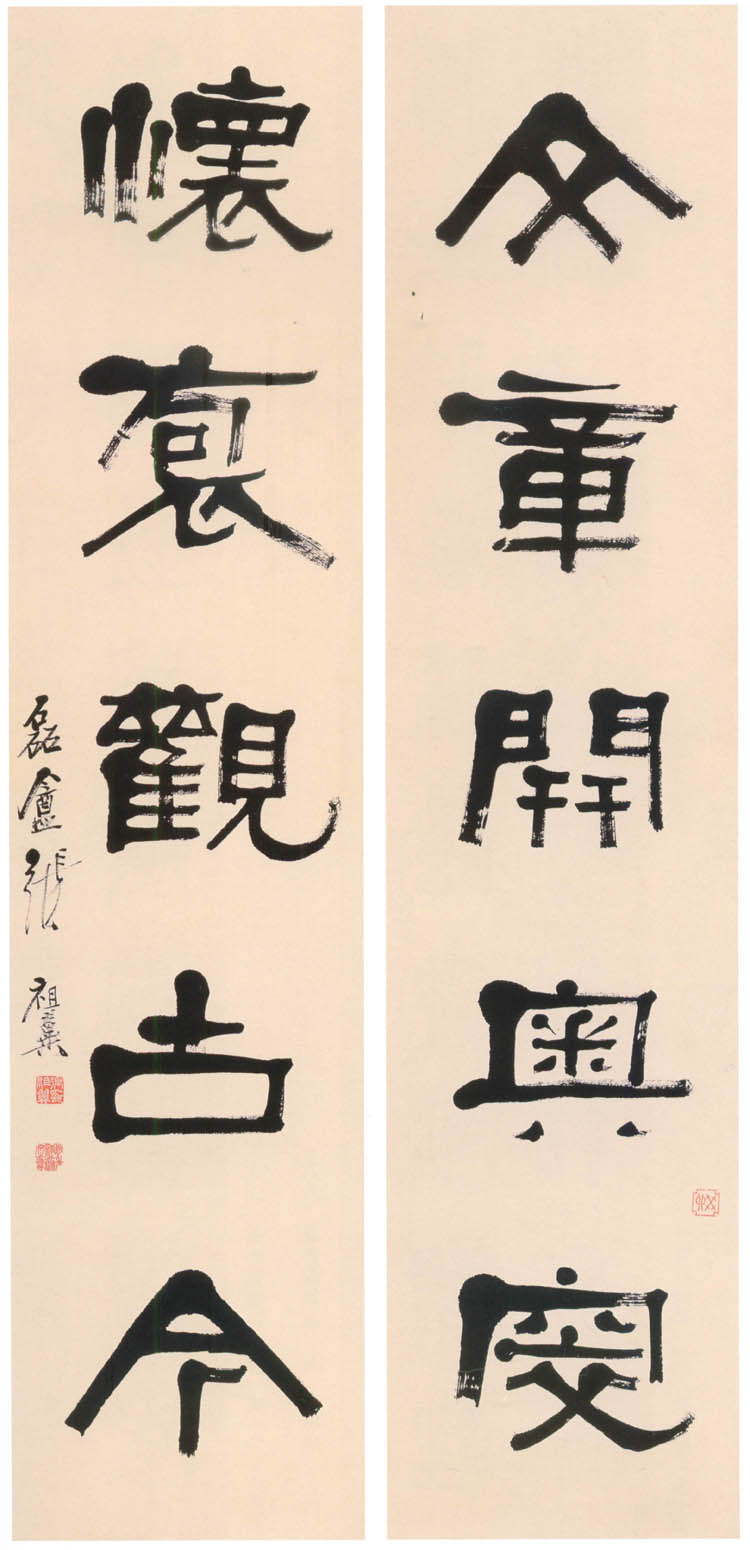 文章開奧窔
懷袌觀古今
磊盦張祖翼